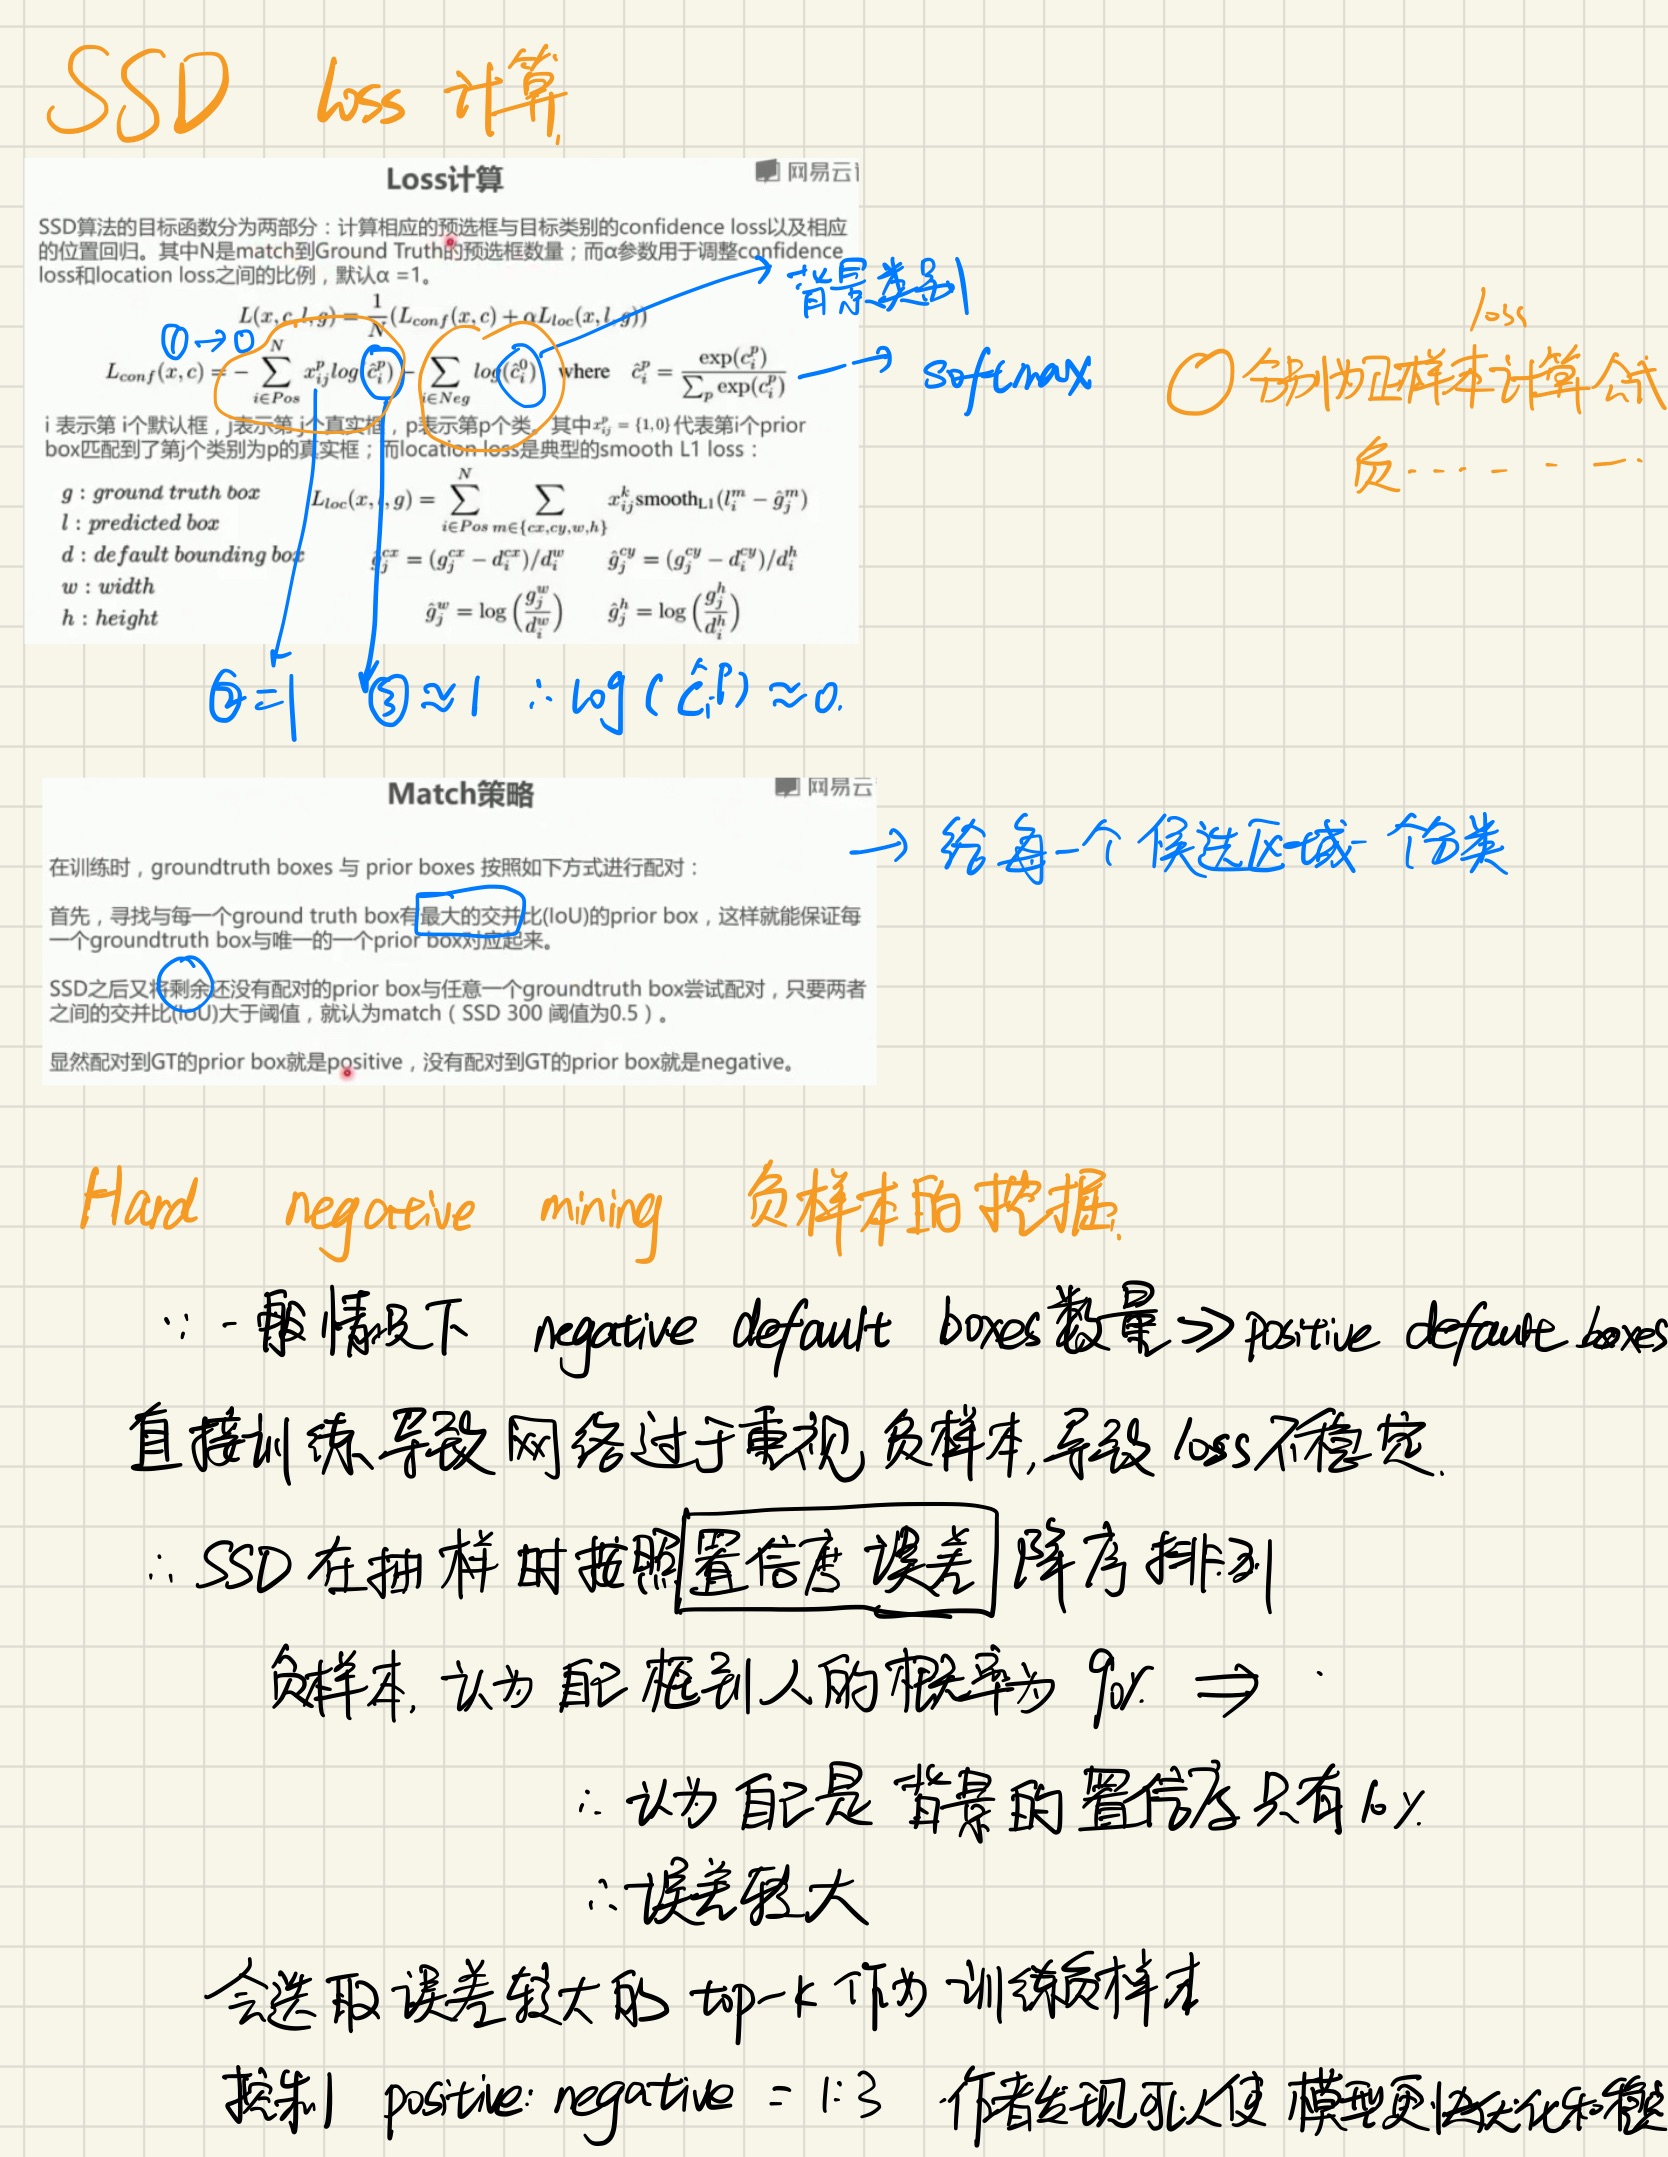 SSD loss 计算
Loss计算
网易云
SSD算法的目标函数分为两部分：计算相应的预选框与目标类别的confidence loss以及相应
的位置回归。其中N是match到Ground Truth的预选框数量；而α参数用于调整confidence
loss和location loss之间的比例，默认α =1。
背景类别
L(x,c,l,g) = 1/N (L_conf(x,c) + αL_loc(x,l,g))
① → 0
L_conf(x,c) = − ∑_{i∈Pos}^{N} x_{ij}^p log(ĉ_i^p) − ∑_{i∈Neg} log(ĉ_i^0) where ĉ_i^p = exp(c_i^p) / ∑_p exp(c_i^p)
→ softmax
loss
○分别为正样本计算公式
负……
i 表示第 i个默认框，j表示第 j个真实框，p表示第p个类。其中x_{ij}^p = {1,0} 代表第i个prior
box匹配到了第j个类别为p的真实框；而location loss是典型的smooth L1 loss：
g : ground truth box
l : predicted box
d : default bounding box
w : width
h : height
L_loc(x,l,g) = ∑_{i∈Pos}^{N} ∑_{m∈{cx,cy,w,h}} x_{ij}^k smooth_{L1}(l_i^m − ĝ_j^m)
ĝ_j^{cx} = (g_j^{cx} − d_i^{cx})/d_i^w ĝ_j^{cy} = (g_j^{cy} − d_i^{cy})/d_i^h
ĝ_j^w = log(g_j^w / d_i^w) ĝ_j^h = log(g_j^h / d_i^h)
②=1 ③≈1 ∴ log(ĉ_i^p)≈0.
Match策略
网易云
→ 给每一个候选区域一个分类
在训练时，groundtruth boxes 与 prior boxes 按照如下方式进行配对：
首先，寻找与每一个ground truth box有最大的交并比(IoU)的prior box，这样就能保证每
一个groundtruth box与唯一的一个prior box对应起来。
SSD之后又将剩余还没有配对的prior box与任意一个groundtruth box尝试配对，只要两者
之间的交并比(IoU)大于阈值，就认为match（SSD 300 阈值为0.5）。
显然配对到GT的prior box就是positive，没有配对到GT的prior box就是negative。
Hard negative mining 负样本的挖掘.
∵ 一般情况下 negative default boxes数量 >> positive default boxes
直接训练导致网络过于重视负样本,导致loss不稳定.
∴ SSD 在抽样时按照置信度误差降序排列
负样本, 认为自己框到人的概率为 90% ⇒
∴ 认为自己是背景的置信度只有10%
∴ 误差较大
会选取误差较大的 top-k 作为训练负样本
控制 positive: negative = 1:3 作者发现可以使模型更快优化和稳定